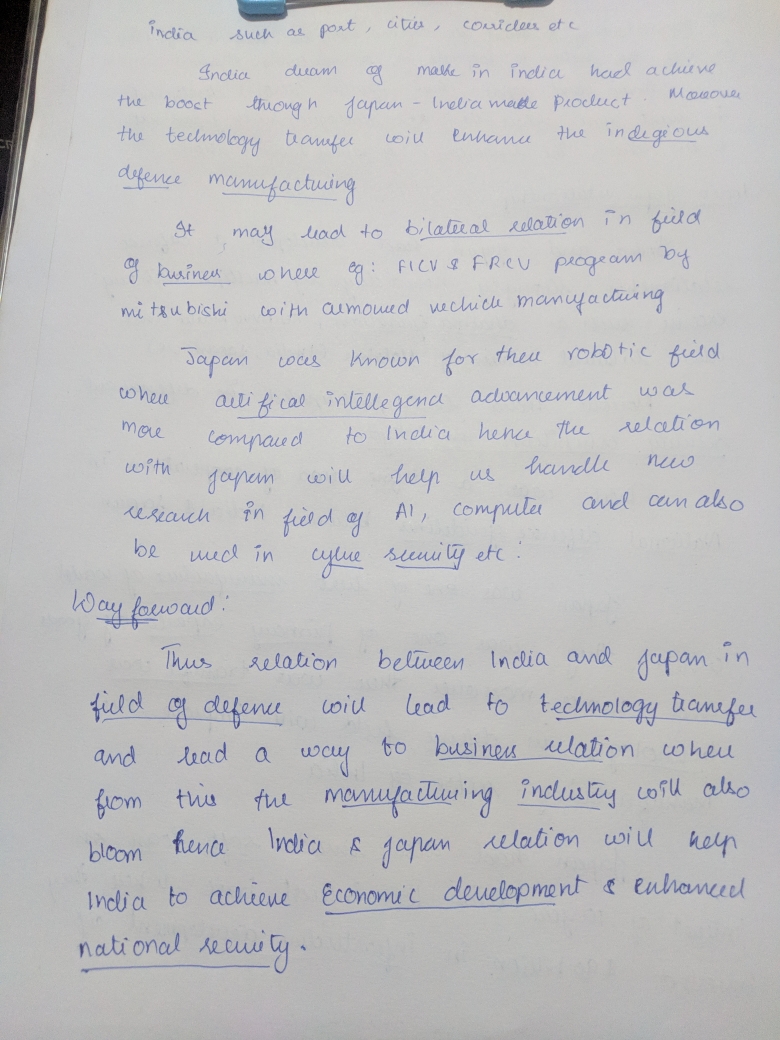 india such as port, cities, corriders etc
India dream of make in india had achieve
the boost through Japan - India made Product. Moreover
the technology transfer will enhance the indegious
defence manufacturing
It may lead to bilateral relation in field
of business where eg: FICV & FRCV program by
mitsubishi with armoured vechicle manufacturing
Japan was known for their robotic field
where artifical intellegend advancement was
more compared to India hence the relation
with Japan will help us handle new
research in field of AI, computer and can also
be used in cyber security etc.
Way forward:
Thus relation between India and Japan in
field of defence will lead to technology transfer
and lead a way to business relation where
from this the manufacturing industry will also
bloom hence India & Japan relation will help
India to achieve Economic development & enhanced
national security.